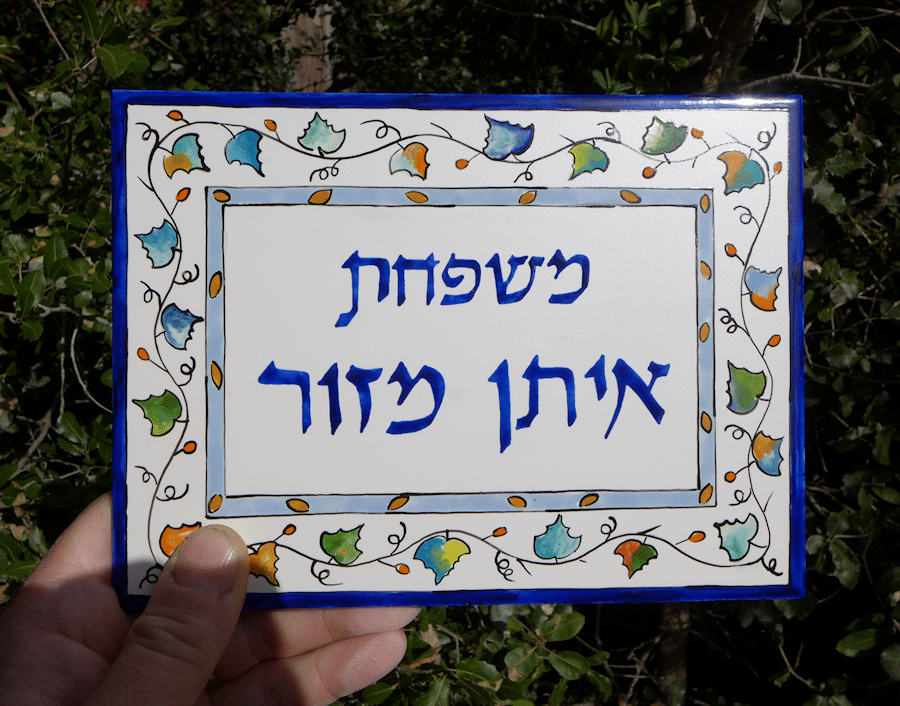 משפחת
איתן מזור